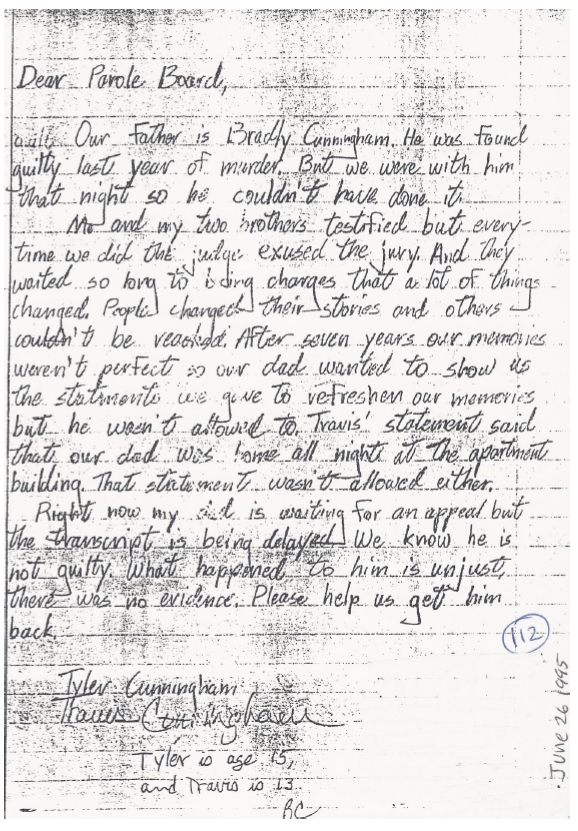 Dear Parole Board,
Our Father is Bradly Cunningham. He was found
guilty last year of murder. But we were with him
that night so he couldn't have done it.
Me and my two brothers testified but every-
time we did the judge exused the jury. And they
waited so long to bring charges that a lot of things
changed. People changed their stories and others
couldn't be reached. After seven years our memories
weren't perfect so our dad wanted to show us
the statments we gave to refreshen our memories
but he wasn't allowed to. Travis' statement said
that our dad was home all night at the apartment
building. That statement wasn't allowed either.
Right now my dad is waiting for an appeal but
the transcript is being delayed. We know he is
not guilty. What happened to him is unjust,
there was no evidence. Please help us get him
back.
112
Tyler Cunningham
Travis Cunningham
Tyler is age 15,
and Travis is 13.
BC
June 26 1995